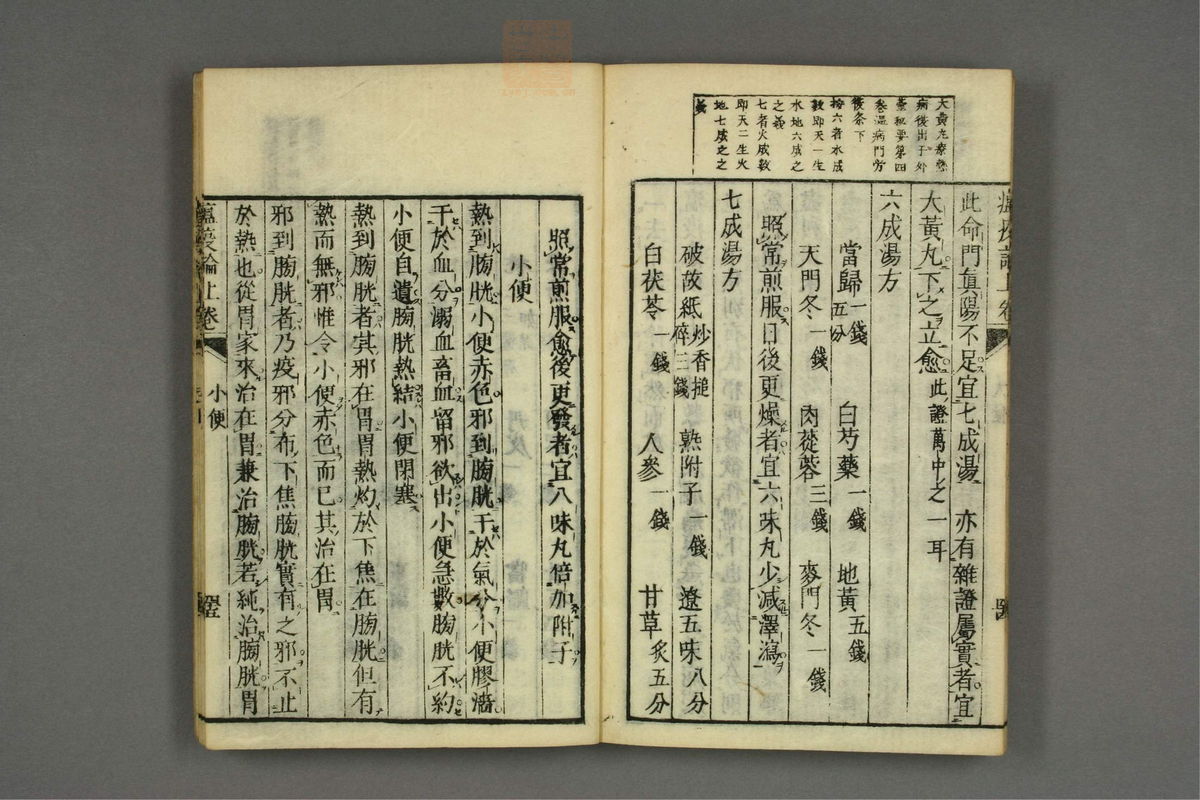 大黄丸療熱
病後出于外
臺秘要第四
卷温病門方
後条下
按六者水成
数即天一生
水地六成之
之義
七者火成数
即天二生火
地七成之之
義
此命門眞陽不足宜七成湯 亦有雜證屬實者宜
大黃丸下之立愈此證萬中之一耳
六成湯方
當歸一錢五分 白芍藥一錢 地黃五錢
天門冬一錢 肉蓯蓉三錢 麥門冬一錢
照常煎服日後更燥者宜六味丸少减澤瀉
七成湯方
破故紙炒香搥碎三錢 熟附子一錢 遼五味八分
白茯苓一錢 人參一錢 甘草炙五分
照常煎服愈後更發者宜八味丸倍加附子
小便
熱到膀胱小便赤色邪到膀胱干於氣分小便膠濇
干於血分溺血畜血留邪欲出小便急數膀胱不約
小便自遺膀胱熱結小便閉塞
熱到膀胱者其邪在胃胃熱灼於下焦在膀胱但有
熱而無邪惟令小便赤色而已其治在胃
邪到膀胱者乃疫邪分布下焦膀胱實有之邪不止
於熱也從胃家來治在胃兼治膀胱若純治膀胱胃
瘟疫論上卷
小便